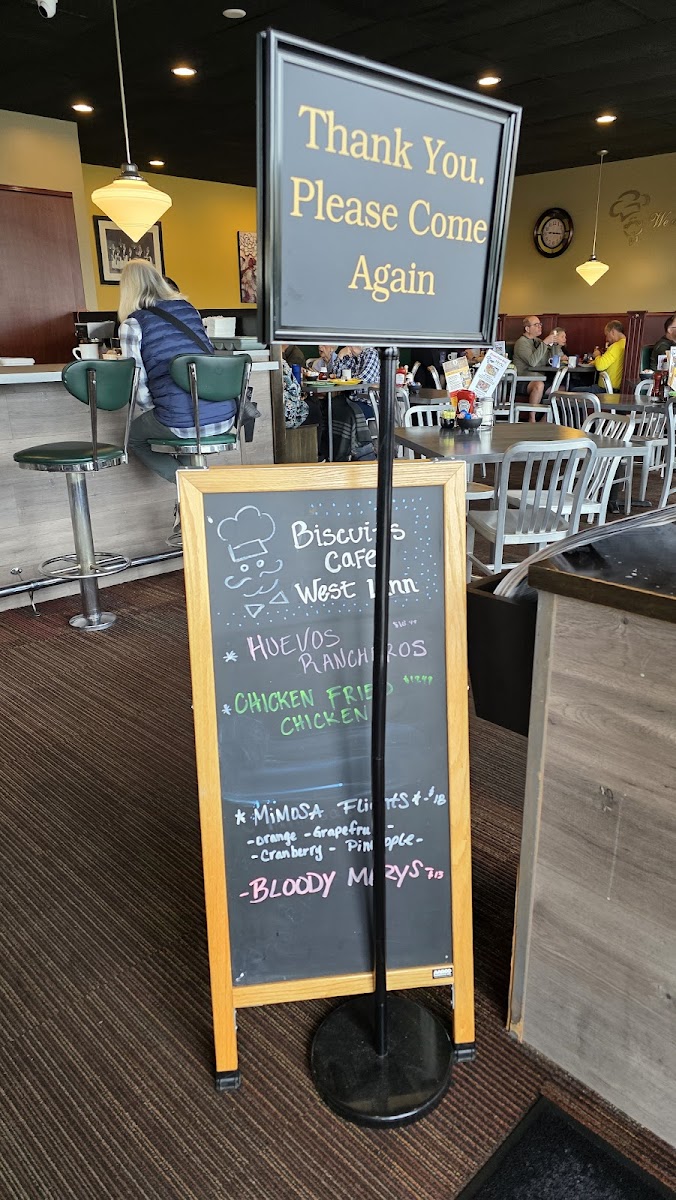 Thank You.
Please Come
Again
Biscuits
Cafe
West Linn
* HUEVOS
RANCHEROS
* CHICKEN FRIED
CHICKEN
* MIMOSA FLIGHTS * - $18
- orange - Grapefruit -
- Cranberry - Pineapple -
- BLOODY MARYS - $13